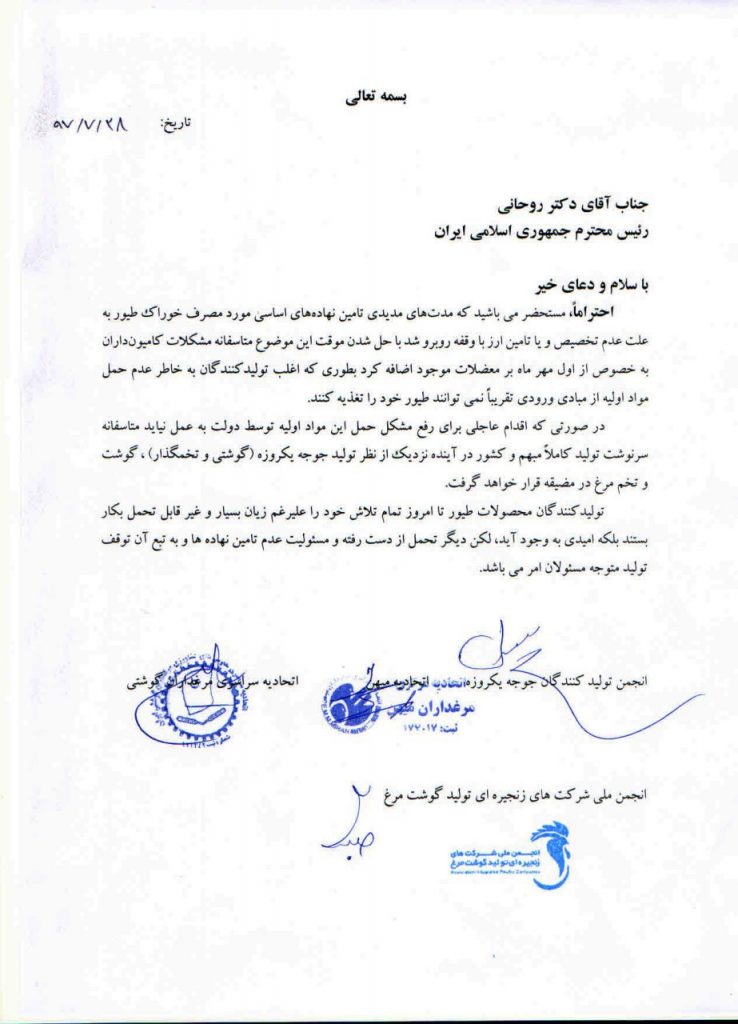 بسمه تعالی
تاریخ: ۹۷/۷/۲۸
جناب آقای دکتر روحانی
رئیس محترم جمهوری اسلامی ایران
با سلام و دعای خیر
احتراماً، مستحضر می باشید که مدت‌های مدیدی تامین نهاده‌های اساسی مورد مصرف خوراک طیور به
علت عدم تخصیص و یا تامین ارز با وقفه روبرو شد با حل شدن موقت این موضوع متاسفانه مشکلات کامیون‌داران
به خصوص از اول مهر ماه بر معضلات موجود اضافه کرد بطوری که اغلب تولیدکنندگان به خاطر عدم حمل
مواد اولیه از مبادی ورودی تقریباً نمی توانند طیور خود را تغذیه کنند.
در صورتی که اقدام عاجلی برای رفع مشکل حمل این مواد اولیه توسط دولت به عمل نیاید متاسفانه
سرنوشت تولید کاملاً مبهم و کشور در آینده نزدیک از نظر تولید جوجه یکروزه (گوشتی و تخمگذار) ، گوشت
و تخم مرغ در مضیقه قرار خواهد گرفت.
تولیدکنندگان محصولات طیور تا امروز تمام تلاش خود را علیرغم زیان بسیار و غیر قابل تحمل بکار
بستند بلکه امیدی به وجود آید، لکن دیگر تحمل از دست رفته و مسئولیت عدم تامین نهاده ها و به تبع آن توقف
تولید متوجه مسئولان امر می باشد.
انجمن تولید کنندگان جوجه یکروزه اتحادیه میهن اتحادیه سراسری مرغداران گوشتی
مرغداران میهن
ثبت: ۱۷۷۰۱۷
انجمن ملی شرکت های زنجیره ای تولید گوشت مرغ
انجمن ملی شرکت های
زنجیره ای تولید گوشت مرغ